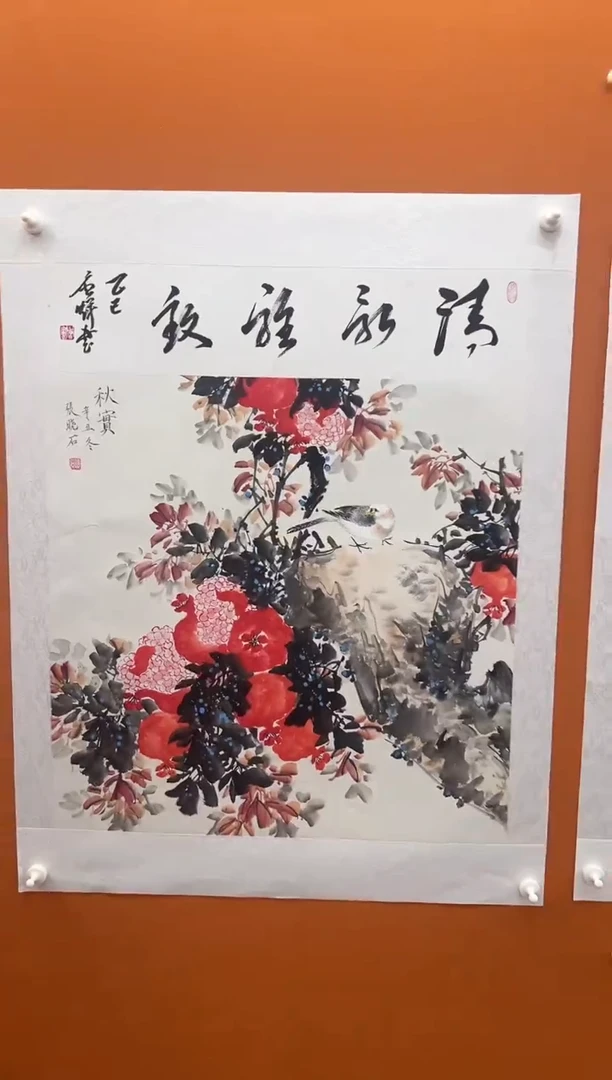 清雅致
乙巳
書
秋實
辛丑冬
張晓石